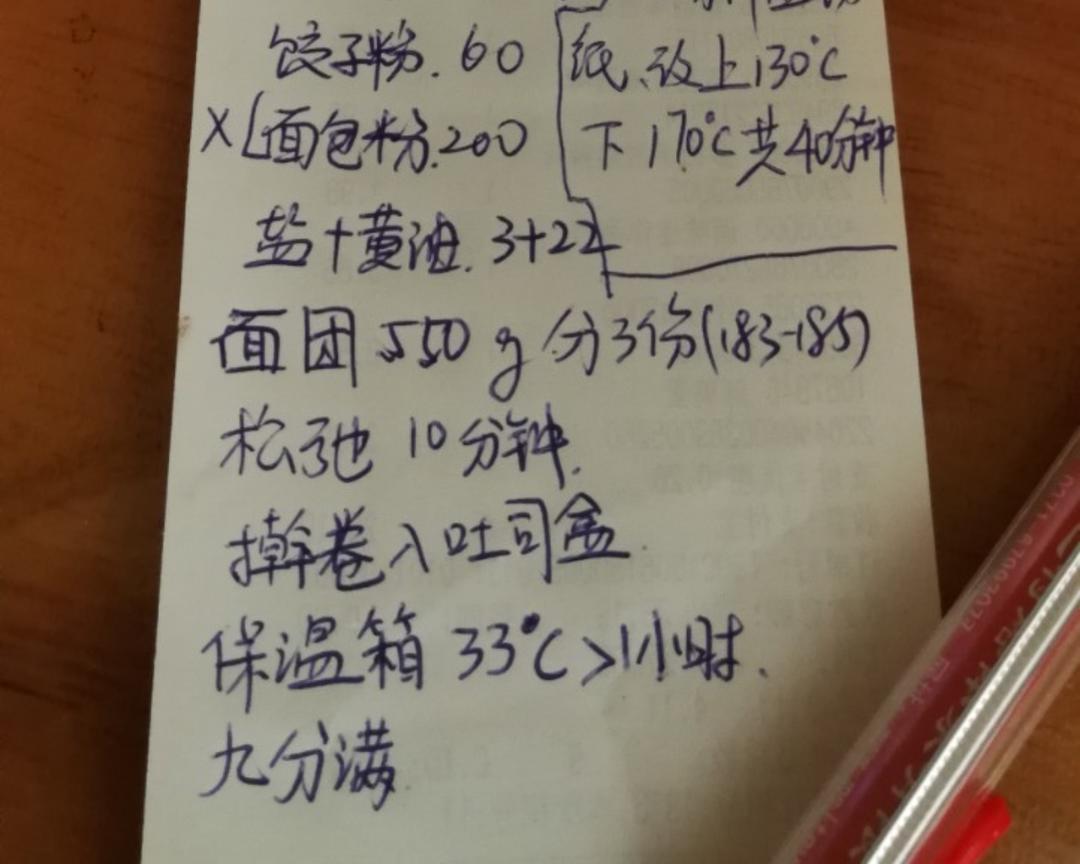 饺子粉.60
X[面包粉.200
盐+黄油.3+22
纸、改上130℃
下170℃共40分钟
面团550g分3份(183-185)
松弛10分钟.
擀卷入吐司盒
保温箱33℃>1小时.
九分满